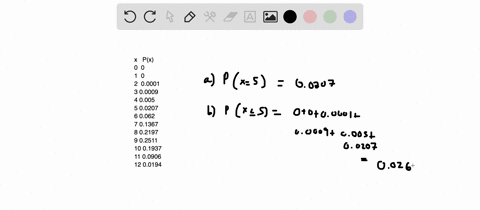 x P(x)
0 0
1 0
2 0.0001
3 0.0009
4 0.005
5 0.0207
6 0.062
7 0.1367
8 0.2197
9 0.2511
10 0.1937
11 0.0906
12 0.0194
a) P(x=5) = 0.0207
b) P(x≤5) = 0+0+0.0001+
0.0009+ 0.005+
0.0207
= 0.026